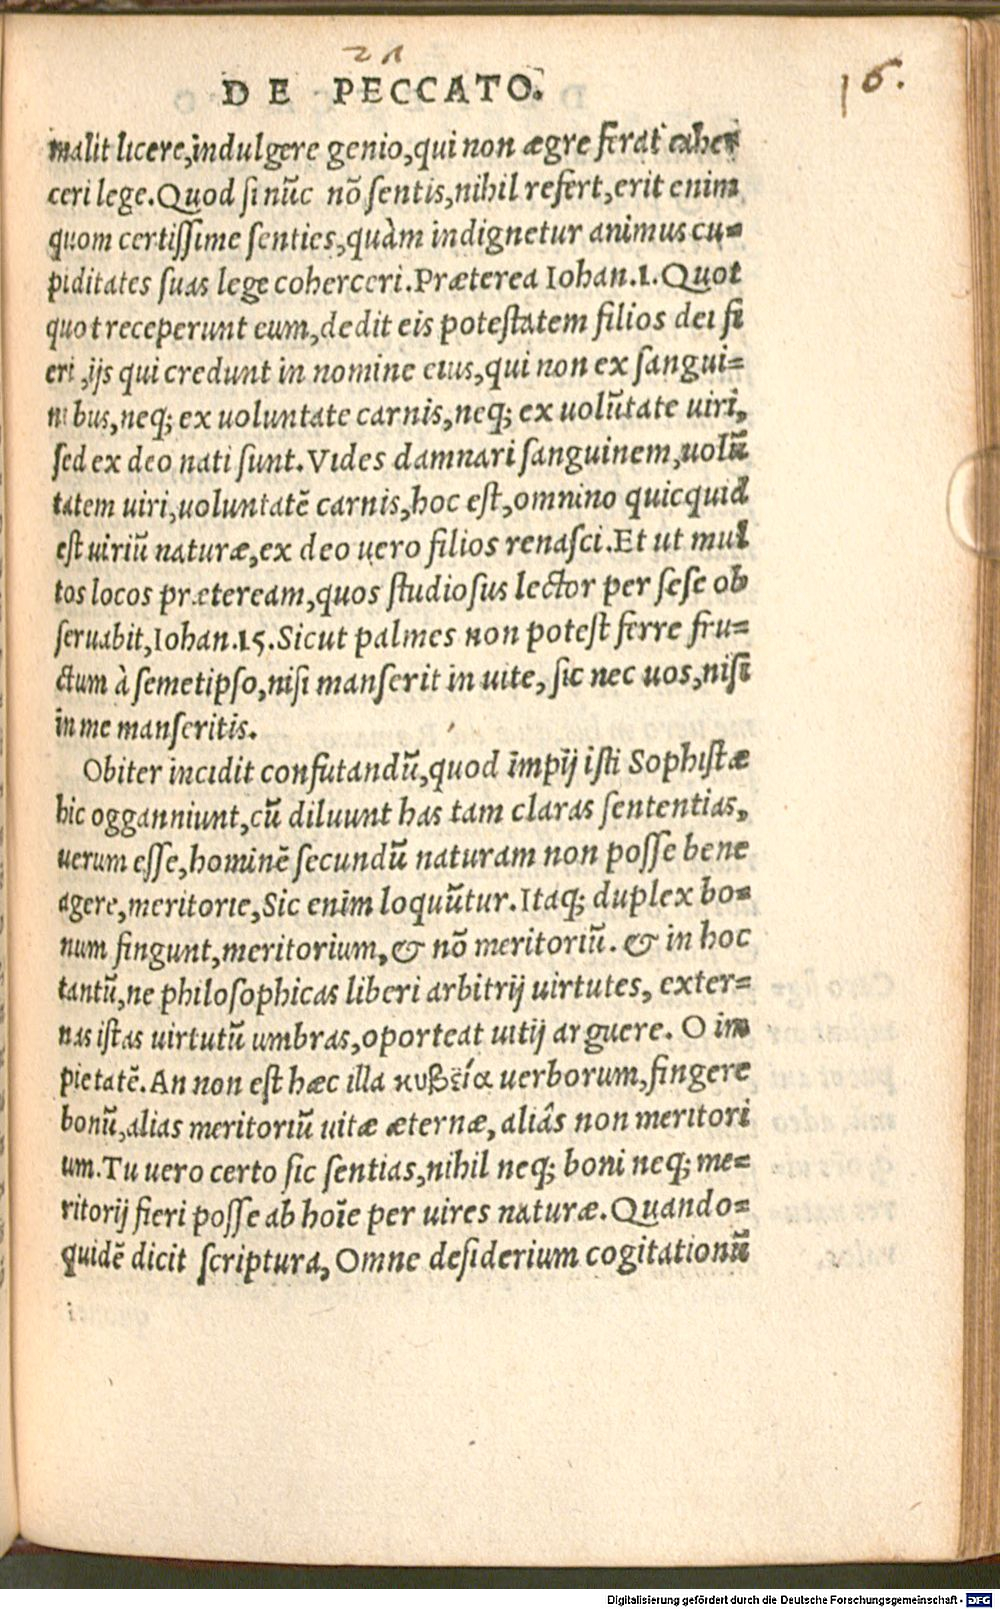 21
16.
DE PECCATO.
malit licere,indulgere genio,qui non ægre ferat coher
ceri lege.Quod si nūc nō sentis,nihil refert,erit enim
quom certissime senties,quàm indignetur animus cu=
piditates suas lege coherceri.Præterea Iohan.1.Quot
quot receperunt eum,dedit eis potestatem filios dei fi
eri ,ijs qui credunt in nomine eius,qui non ex sangui=
nibus,neq; ex uoluntate carnis,neq; ex uolūtate uiri,
sed ex deo nati sunt.Vides damnari sanguinem,uolū
tatem uiri,uoluntatē carnis,hoc est,omnino quicquid
est uiriū naturæ,ex deo uero filios renasci.Et ut mul
tos locos præteream,quos studiosus lector per sese ob
seruabit,Iohan.15.Sicut palmes non potest ferre fru=
ctum à semetipso,nisi manserit in uite, sic nec uos,nisi
in me manseritis.
Obiter incidit confutandū,quod impij isti Sophistæ
hic ogganniunt,cū diluunt has tam claras sententias,
uerum esse,hominē secundū naturam non posse bene
agere,meritorie,Sic enim loquūtur.Itaq; duplex bo=
num fingunt,meritorium,& nō meritoriū. & in hoc
tantū,ne philosophicas liberi arbitrij uirtutes, exter=
nas istas uirtutū umbras,oporteat uitij arguere. O im
pietatē.An non est hæc illa κυβεία uerborum,fingere
bonū,alias meritoriū uitæ æternæ, aliâs non meritori
um.Tu uero certo sic sentias,nihil neq; boni neq; me=
ritorij fieri posse ab hoīe per uires naturæ.Quando=
quidē dicit scriptura, Omne desiderium cogitationū
Digitalisierung gefördert durch die Deutsche Forschungsgemeinschaft - DFG